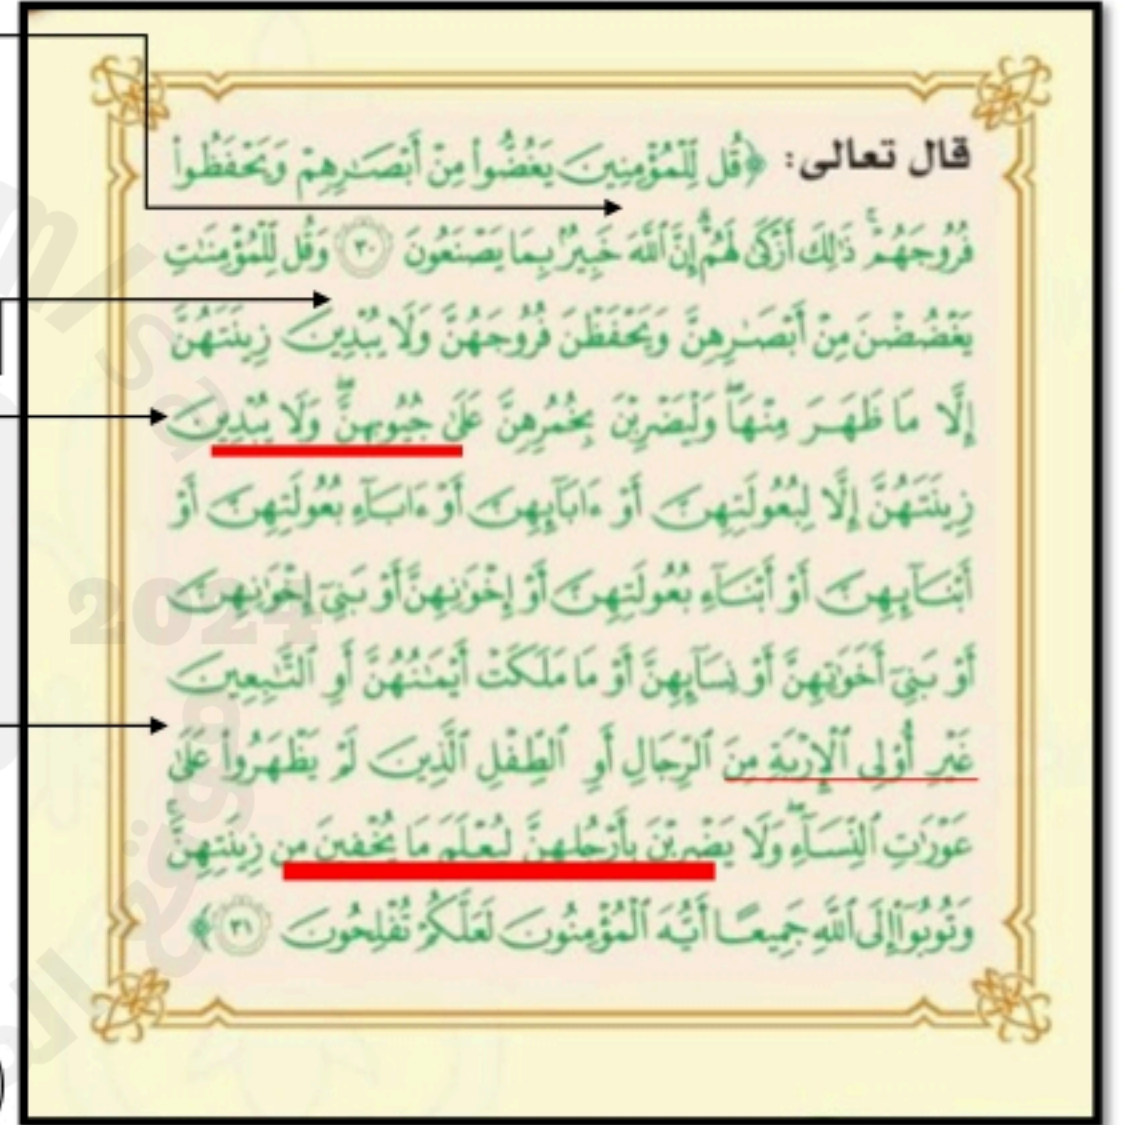 قال تعالى: ﴿قُل لِّلْمُؤْمِنِينَ يَغُضُّوا۟ مِنْ أَبْصَـٰرِهِمْ وَيَحْفَظُوا۟
فُرُوجَهُمْ ۚ ذَٰلِكَ أَزْكَىٰ لَهُمْ ۗ إِنَّ ٱللَّهَ خَبِيرٌۢ بِمَا يَصْنَعُونَ ٣٠ وَقُل لِّلْمُؤْمِنَـٰتِ
يَغْضُضْنَ مِنْ أَبْصَـٰرِهِنَّ وَيَحْفَظْنَ فُرُوجَهُنَّ وَلَا يُبْدِينَ زِينَتَهُنَّ
إِلَّا مَا ظَهَرَ مِنْهَا ۖ وَلْيَضْرِبْنَ بِخُمُرِهِنَّ عَلَىٰ جُيُوبِهِنَّ ۖ وَلَا يُبْدِينَ
زِينَتَهُنَّ إِلَّا لِبُعُولَتِهِنَّ أَوْ ءَابَآئِهِنَّ أَوْ ءَابَآءِ بُعُولَتِهِنَّ أَوْ
أَبْنَآئِهِنَّ أَوْ أَبْنَآءِ بُعُولَتِهِنَّ أَوْ إِخْوَٰنِهِنَّ أَوْ بَنِىٓ إِخْوَٰنِهِنَّ
أَوْ بَنِىٓ أَخَوَٰتِهِنَّ أَوْ نِسَآئِهِنَّ أَوْ مَا مَلَكَتْ أَيْمَـٰنُهُنَّ أَوِ ٱلتَّـٰبِعِينَ
غَيْرِ أُو۟لِى ٱلْإِرْبَةِ مِنَ ٱلرِّجَالِ أَوِ ٱلطِّفْلِ ٱلَّذِينَ لَمْ يَظْهَرُوا۟ عَلَىٰ
عَوْرَٰتِ ٱلنِّسَآءِ ۖ وَلَا يَضْرِبْنَ بِأَرْجُلِهِنَّ لِيُعْلَمَ مَا يُخْفِينَ مِن زِينَتِهِنَّ ۚ
وَتُوبُوٓا۟ إِلَى ٱللَّهِ جَمِيعًا أَيُّهَ ٱلْمُؤْمِنُونَ لَعَلَّكُمْ تُفْلِحُونَ ٣١﴾
2024